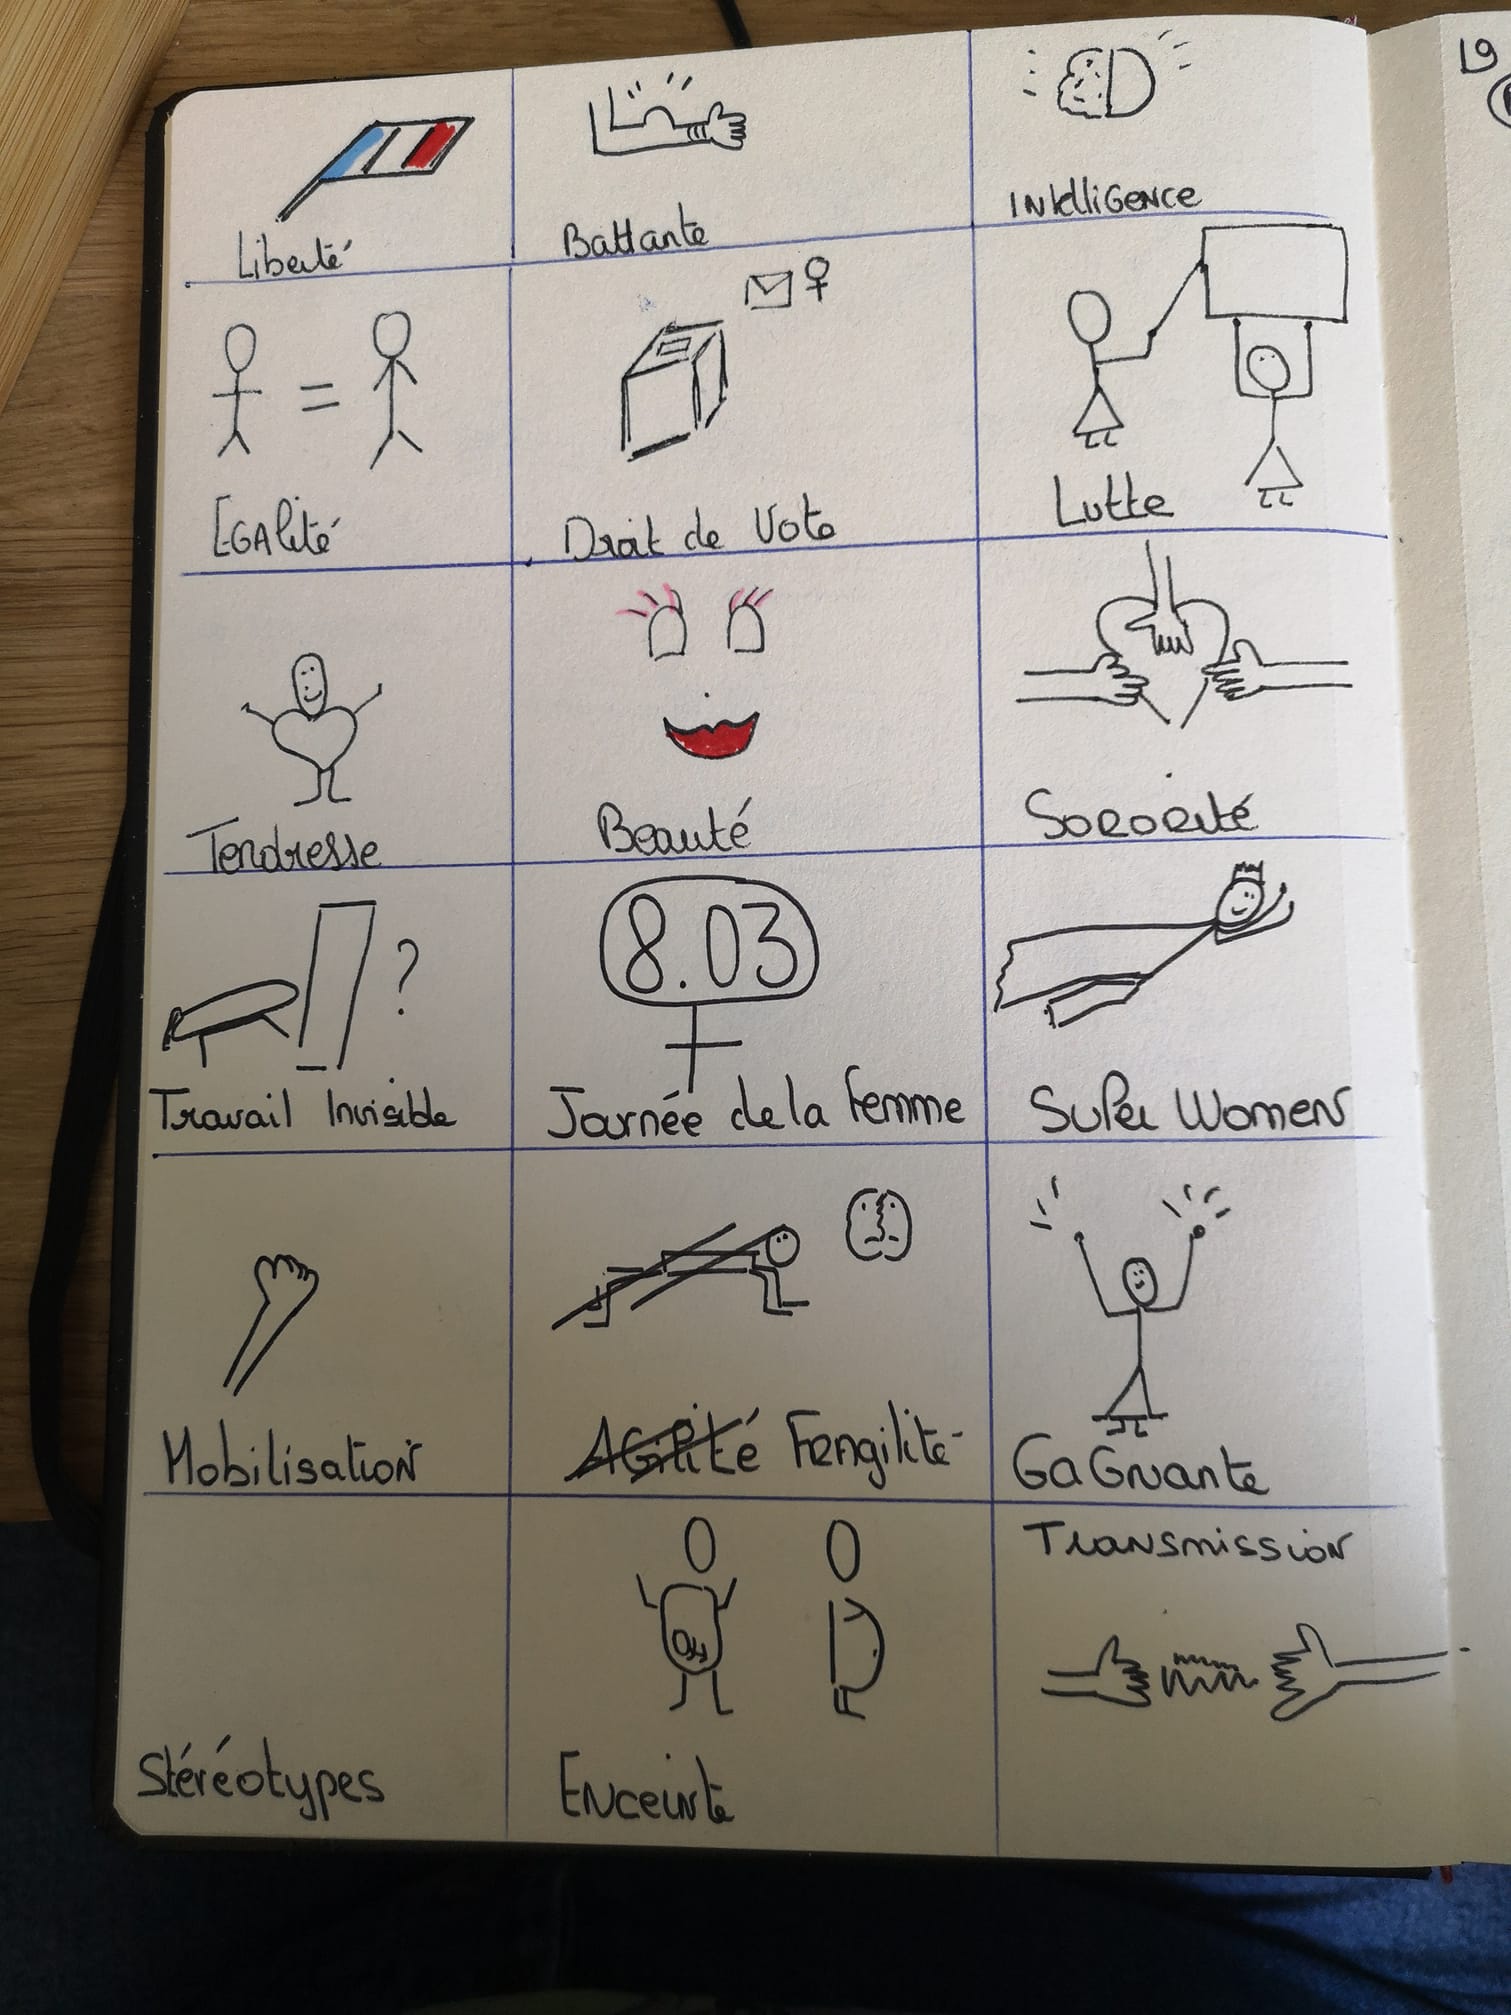 Liberté
Battante
INtelliGeNce
19
EGAlité
Droit de Vote
Lutte
Tendresse
Beauté
SORORité
?
8.03
Travail Invisible
Journée de la Femme
SuPer WomeN
MobilisatioN
AGilité Fragilité
GaGNante
Stéréotypes
ENceinte
TraNsmissioN